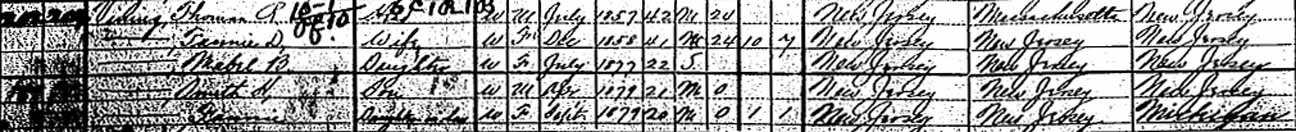 Thomas R. W M July 1857 42 M 24 New Jersey Massachusetts New Jersey
Fannie D. Wife W F Dec 1858 41 M 24 10 7 New Jersey New Jersey New Jersey
Mabel B. Daughter W F July 1877 22 S New Jersey New Jersey New Jersey
Son W M Apr 1879 21 M 0 New Jersey New Jersey New Jersey
Fannie Daughter in law W F Sept 1879 20 M 0 1 1 New Jersey New Jersey Michigan